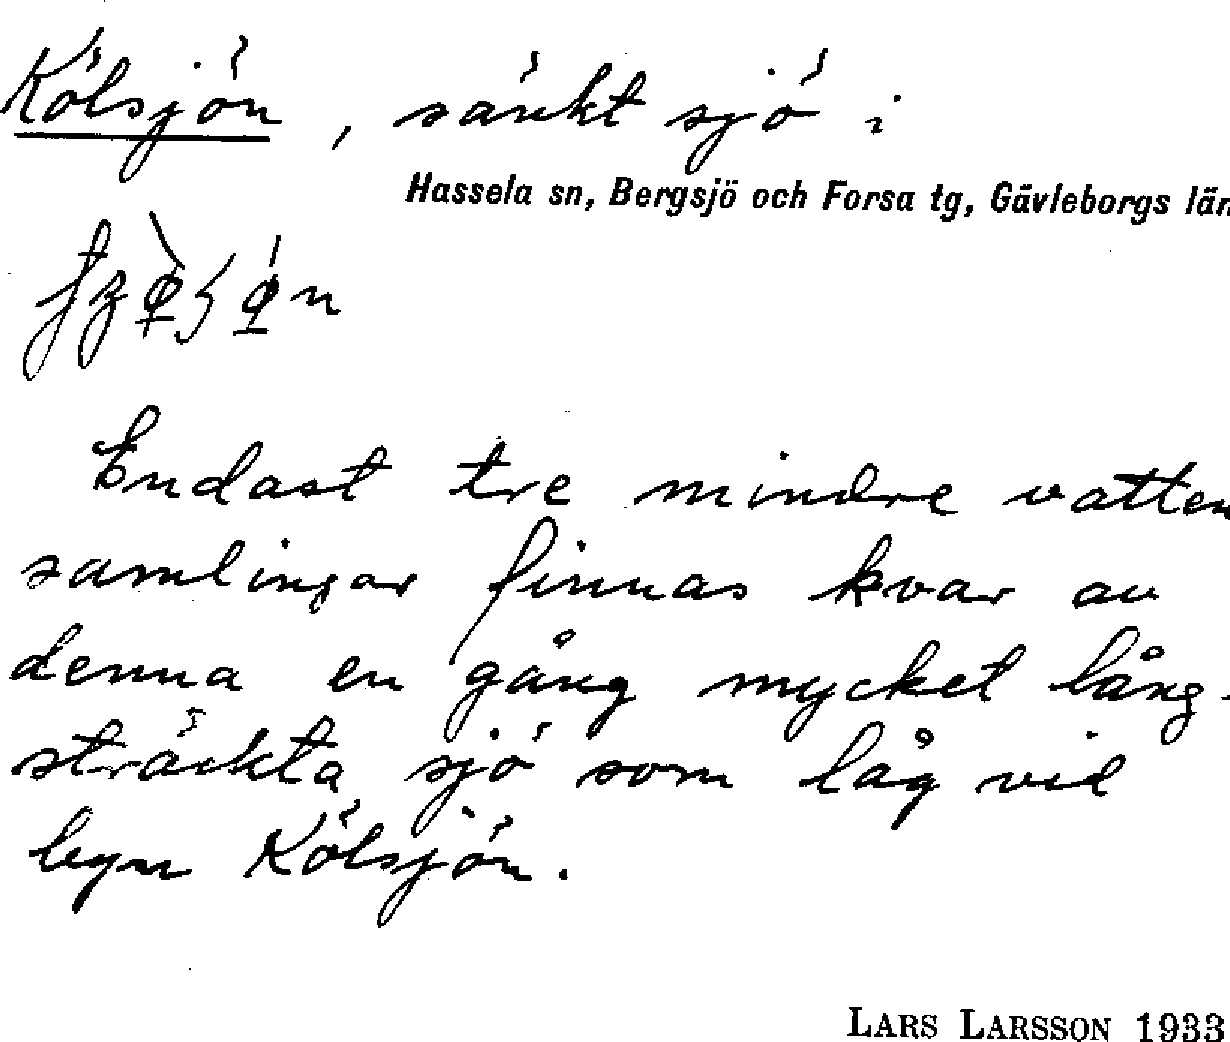 Kölsjön, sänkt sjö i
Hassela sn, Bergsjö och Forsa tg, Gävleborgs län
Endast tre mindre vatten
samlingar finnas kvar av
denna en gång mycket lång-
sträckta sjö som låg vid
byn Kölsjön.
LARS LARSSON 1933